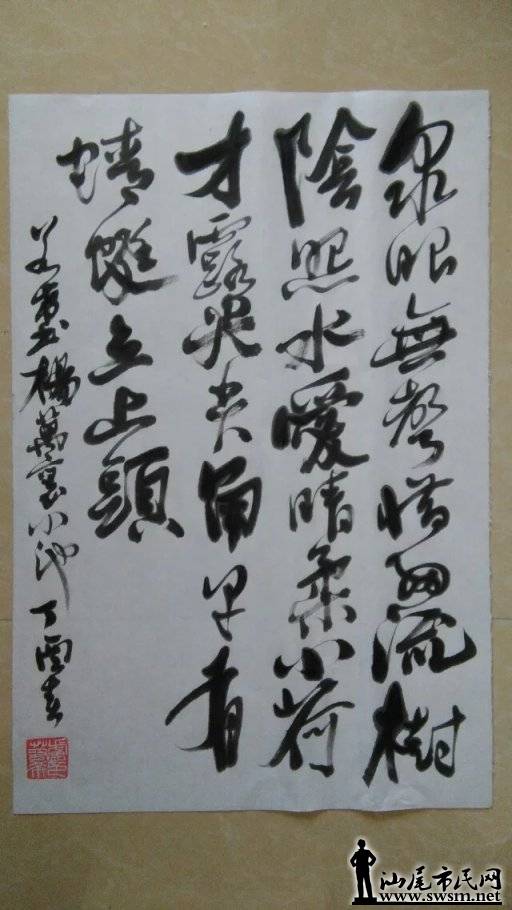 泉眼無聲惜細流樹
陰照水愛晴柔小荷
才露尖尖角早有
蜻蜓立上頭
書楊萬里小池 丁酉春
汕尾市民网
www.swsm.net